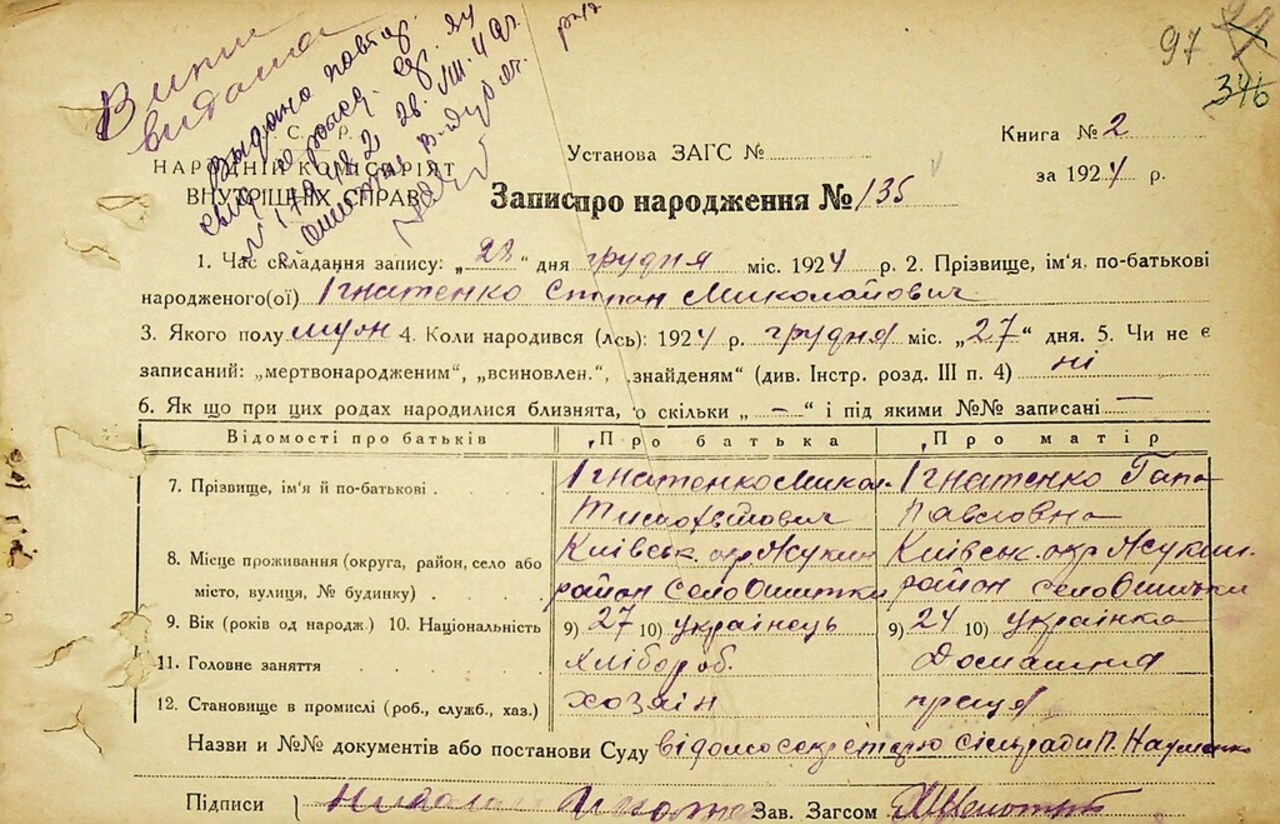 97
346
Випис
видана
Выдано повтор.
С. Р.
НАРОДНІЙ КОМІСАРІЯТ
ВНУТРІШНІХ СПРАВ
Установа ЗАГС №
Книга № 2
за 1924 р.
Запис про народження № 135
1. Час складання запису: „28“ дня грудня міс. 1924 р. 2. Прізвище, ім'я, по-батькові
народженого(ої) Ігнатенко Степан Миколайович
3. Якого полу муж 4. Коли народився (лсь): 1924 р. грудня міс. „27“ дня. 5. Чи не є
записаний: „мертвонародженим“, „всиновлен.“, „знайденям“ (див. Інстр. розд. III п. 4) ні
6. Як що при цих родах народилися близнята, о скільки „—“ і під якими №№ записані —
Відомості про батьків Про батька Про матір
7. Прізвище, ім'я й по-батькові Ігнатенко Микол. Ігнатенко Гапа
Тимофійович Павловна
8. Місце проживання (округа, район, село або Київськ. окр. Жукин Київськ. окр. Жукин.
місто, вулиця, № будинку) район Село Ошитки район село Ошитки
9. Вік (років од народж.) 10. Національність 9) 27 10) українець 9) 24 10) українка
11. Головне заняття хлібороб. Домашня
12. Становище в промислі (роб., служб., хаз.) хозяін праця
Назви и №№ документів або постанови Суду відомо секретарю сільради П. Науменко
Підписи Зав. Загсом